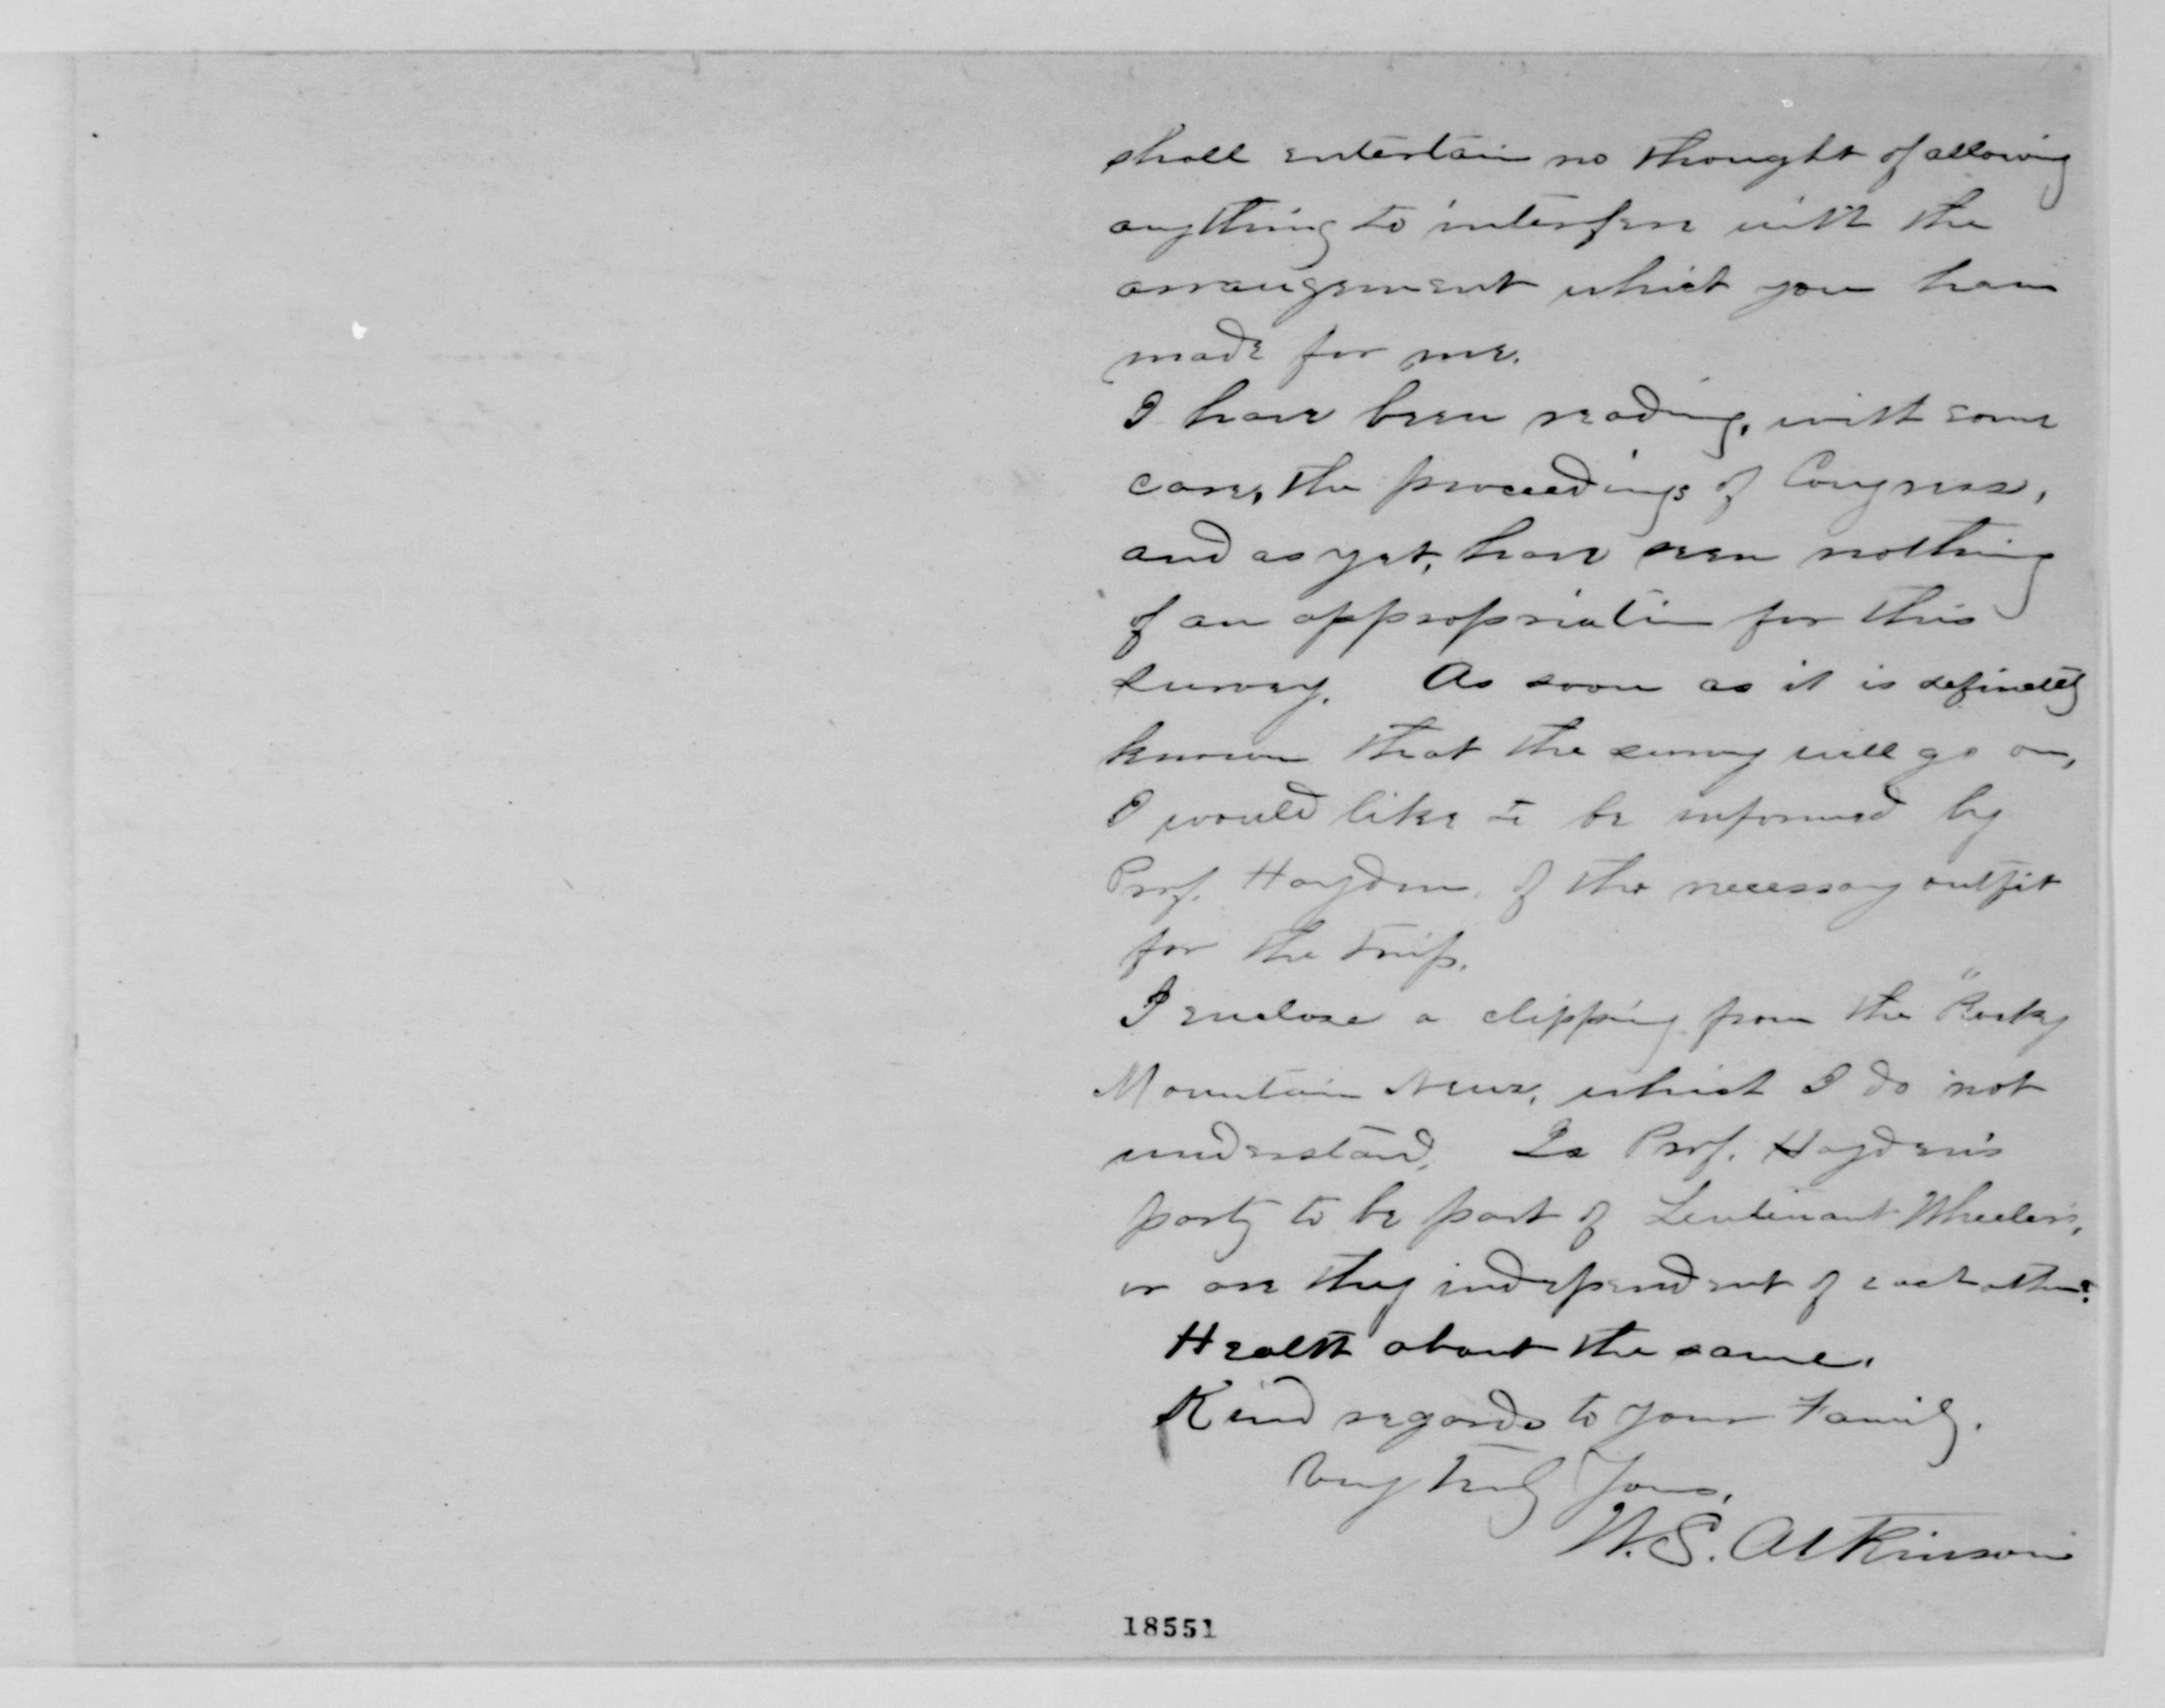 shall entertain no thought of allowing
anything to interfere with the
arrangement which you have
made for me.
I have been reading, with some
care, the proceedings of Congress,
and as yet, have seen nothing
of an appropriation for this
survey. As soon as it is definitely
known that the survey will go on,
I would like to be informed by
Prof. Hayden, of the necessary outfit
for the trip.
I enclose a clipping from the "Rocky
Mountain News, which I do not
understand. Is Prof. Hayden's
party to be part of Leutenant Wheeler's,
or are they independent of each other?
Health about the same.
Kind regards to your Family.
Very truly Yours,
W. S. Atkinson
18551